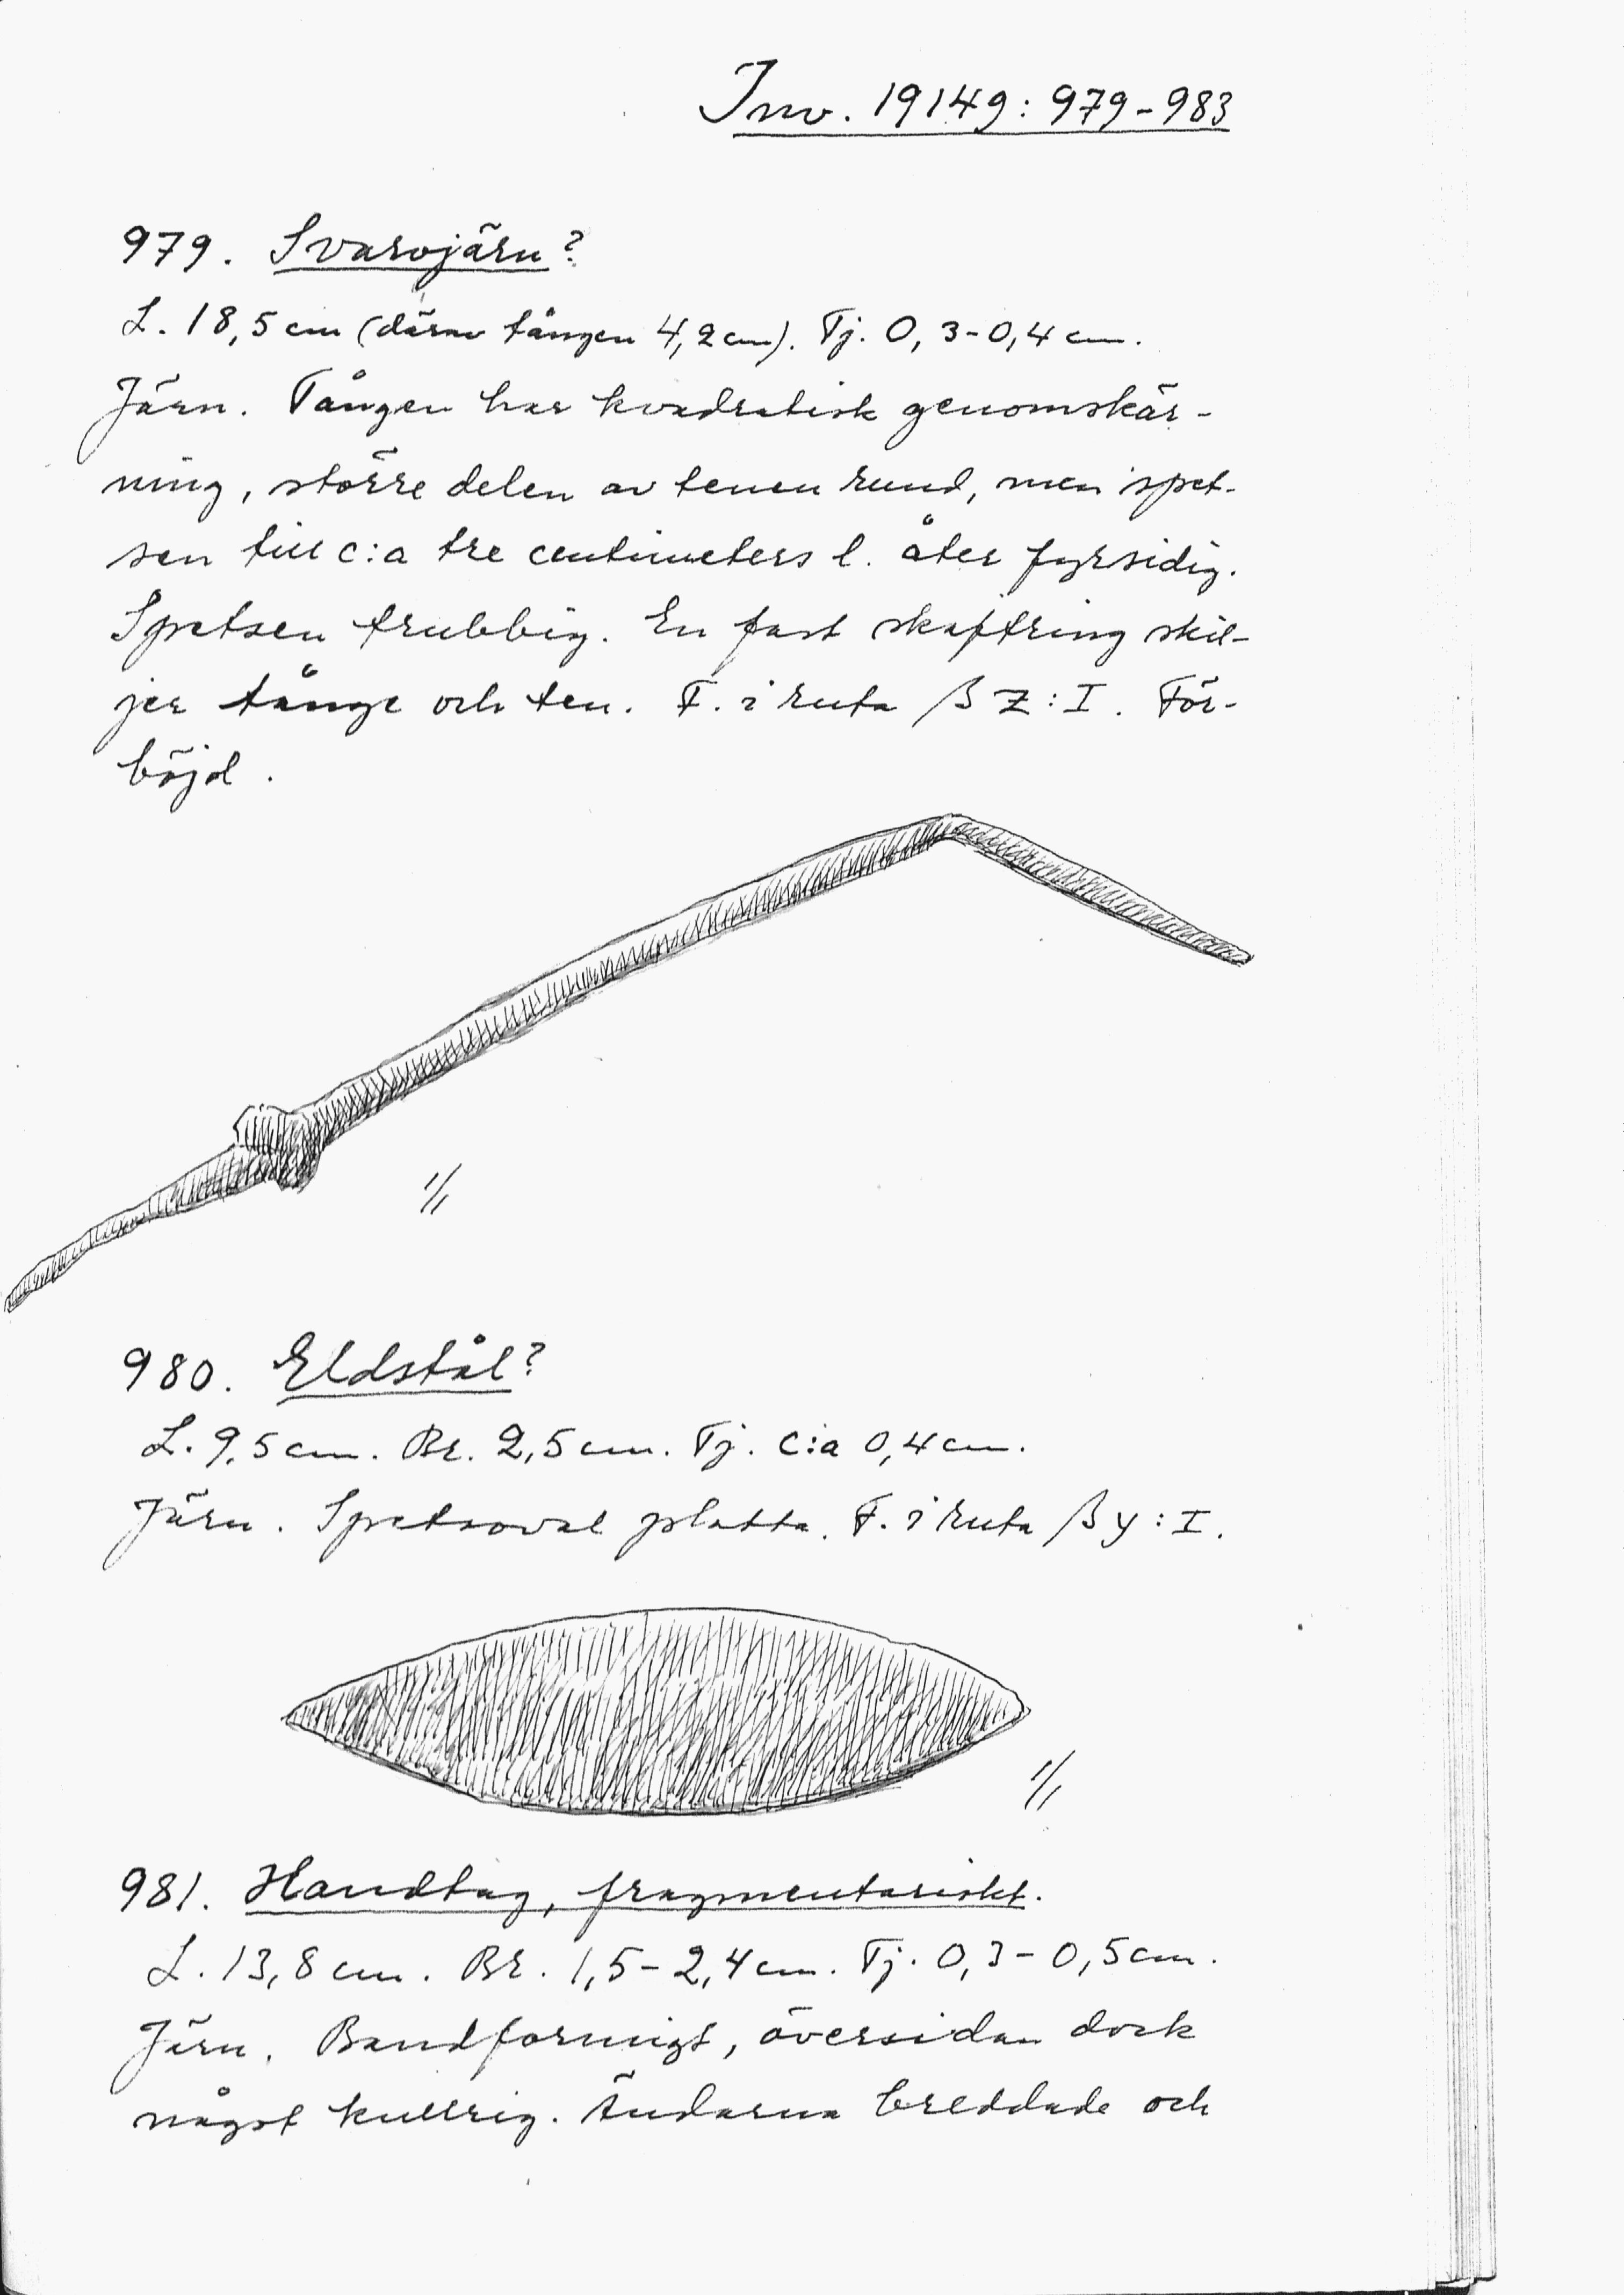 Inv. 19149: 979-983
979. Svarvjärn?
L. 18,5 cm (därav tången 4,2 cm). Tj. 0,3-0,4 cm.
Järn. Tången har kvadratisk genomskär-
ning, större delen av tenen rund, men spet-
sen till c:a tre centimeters l. åter fyrsidig.
Spetsen trubbig. En fast skaftring skil-
jer tånge och ten. F. i ruta β z:I. För-
böjd.
1/1
980. Eldstål?
L. 9,5 cm. Br. 2,5 cm. Tj. c:a 0,4 cm.
Järn. Spetsoval platta. F. i ruta β y:I.
1/1
981. Handtag, fragmentariskt.
L. 13,8 cm. Br. 1,5-2,4 cm. Tj. 0,3-0,5 cm.
Järn. Bandformigt, översidan dock
något kullrig. Ändarna breddade och